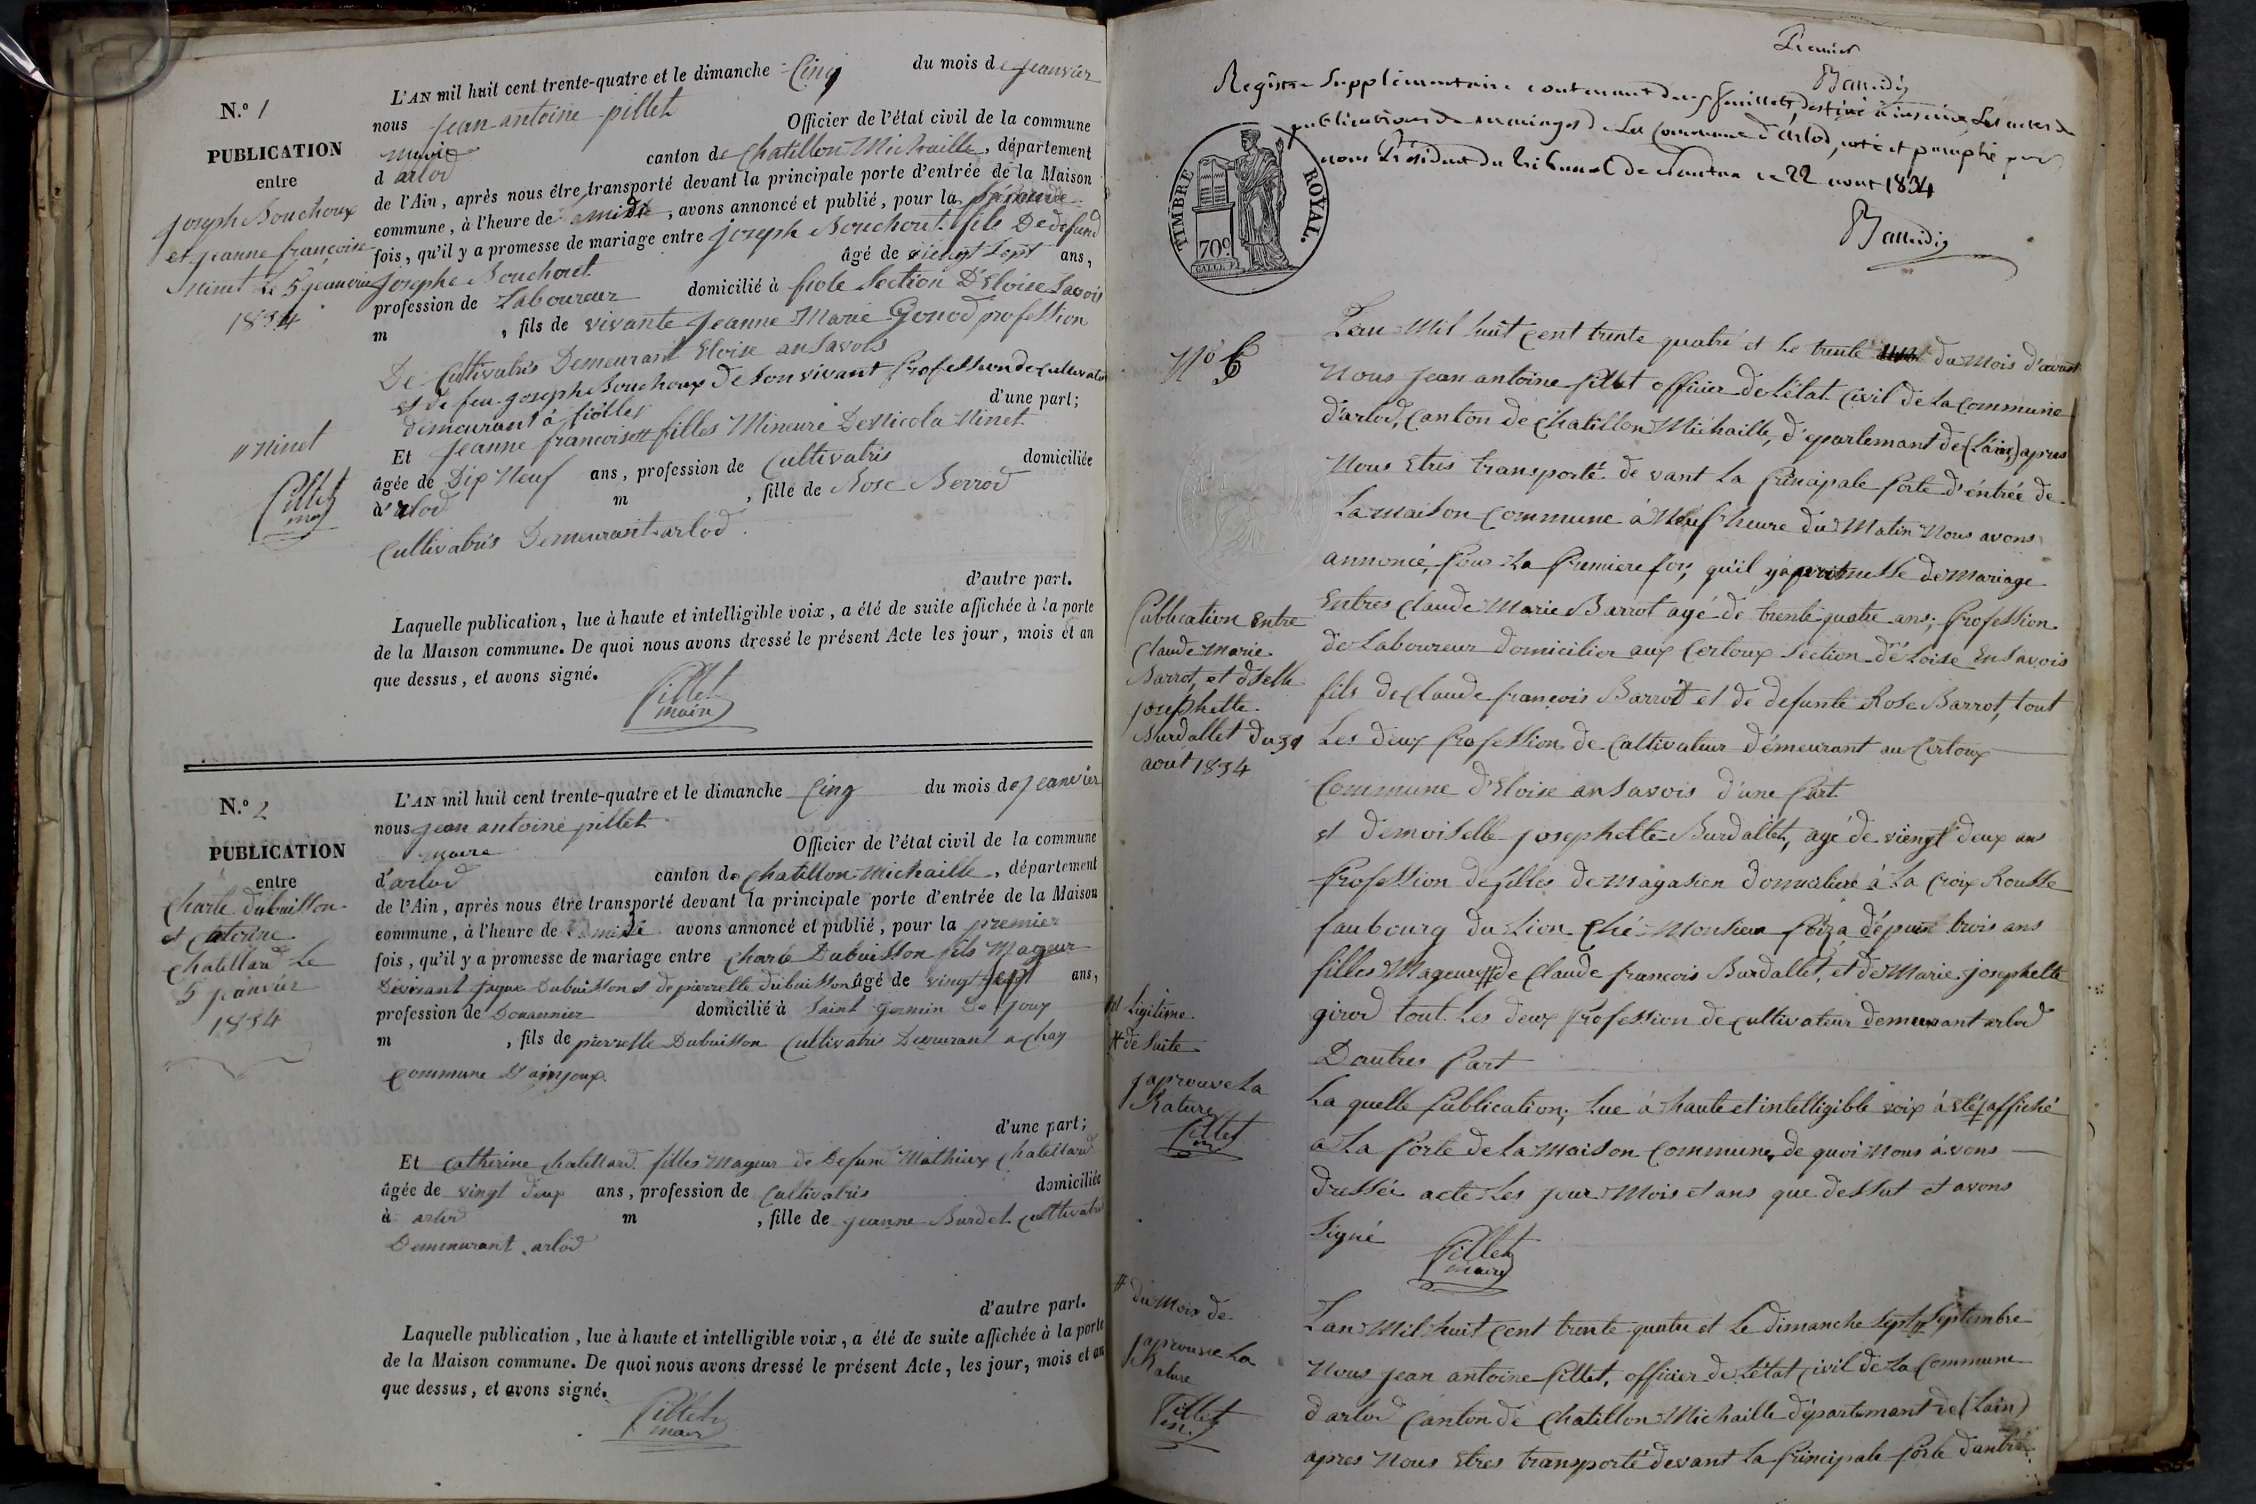 N.º 1
PUBLICATION
entre
joseph Bouchoux
et jeanne françoise
ninet Le 5 jeanvier
1834
" Ninet
Pillet
L'AN mil huit cent trente-quatre et le dimanche Cinq du mois de jeanvier
nous jean antoine pillet
Officier de l'état civil de la commune
d'arlod canton de Chatillon Michaille, département
de l'Ain, après nous être transporté devant la principale porte d'entrée de la Maison
commune, à l'heure de midi, avons annoncé et publié, pour la
fois, qu'il y a promesse de mariage entre joseph Bouchout fils De defund
josephe Bouchout âgé de vient sept ans,
profession de Laboureur domicilié à fiole Section D'Eloise Savois
m , fils de vivante jeanne Marie Gonod profession
De Cultivatris Demeurant Eloise ansavois
et de feu joseph Bouchoux de Son vivant profession de Cultivateur
demeurant à fiolles d'une part;
Et jeanne françoise # filles Mineure De Nicola Ninet
âgée de Dix Neuf ans, profession de Cultivatris domiciliée
à arlod m , fille de Rose Berrod
Cultivatris Demeurant arlod.
d'autre part.
Laquelle publication, lue à haute et intelligible voix, a été de suite affichée à la porte
de la Maison commune. De quoi nous avons dressé le présent Acte les jour, mois et an
que dessus, et avons signé.
Pillet
maire
N.º 2
PUBLICATION
entre
Charle dubuisson
et Caterine
Chatellard Le
5 janvier
1834
L'AN mil huit cent trente-quatre et le dimanche Cinq du mois de jeanvier
nous jean antoine pillet
maire Officier de l'état civil de la commune
d'arlod canton de Chatillon Michaille, département
de l'Ain, après nous être transporté devant la principale porte d'entrée de la Maison
commune, à l'heure de midi avons annoncé et publié, pour la premier
fois, qu'il y a promesse de mariage entre Charle Dubuisson fils Mageur
Dubuisson et de pierrette dubuisson âgé de vingt sept ans,
profession de Douannier domicilié à Saint germin De joux
m , fils de pierrette Dubuisson Cultivatris Demurant a Chay
Commune D'ainjoux.
d'une part;
Et Catherine Chatellard filles Mageur de Defund Mathieux Chatellard
âgée de vingt deux ans, profession de Cultivatris domiciliée
à arlod m , fille de jeanne Burdet Cultivatris
Demmurant arlod
d'autre part.
Laquelle publication, lue à haute et intelligible voix, a été de suite affichée à la porte
de la Maison commune. De quoi nous avons dressé le présent Acte, les jour, mois et an
que dessus, et avons signé.
Pillet
maire
Premier
Registre Supplémentaire contenant deux feuillets, destiné à inscrire Les actes de
publications de mariages de La Commune d'arlod, coté et paraphé par
nous Président du tribunal de Nantua ce 22 aout 1834
TIMBRE ROYAL.
70c
Nº 6
Publication Entre
Claude Marie
Barrot, et diselle
josephette
Burdallet du 31
aout 1834
et Ligitime
# de Suite
japrouve La
Rature
Pillet
L'an Mil huit Cent trente quatre et Le trente du Mois d'aoust
Nous jean antoine pillet officier de L'état Civil de La Commune
d'arlod, Canton de Chatillon Michaille, d'epartemant de (L'ain,) apres
Nous Etres transporté de vant La Principale Porte d'éntrée de
La maison Commune à Neuf heure du Matin Nous avons
annoncé, Pour La Premiere foi, qu'il y à promesse de Mariage
Entres Claude Marie Barrot agé de trente quatre ans; Profession
de Laboureur domicilier aux Certoux Section d'éloise En Savois
fils de Claude françois Barrot et de defunte Rose Barrot, tout
Les deux Profession de Cultivatuur démeurant au Certoux
Commune d'Eloise an Savois d'une Part
et d'emoiselle josephette Burdallet, agé de viengt deux ans
Profession de filles de Magasien domicilieré à La Croix Rousse
faubourg du Lion Ché Monsieur Poiza dépuis trois ans
filles Mageure # de Claude francois Burdallet, et de Marie josephette
girod tout Les deux Profession de Cultivateur demeurant arlod
D'autres Part
La quelle Publication, Lue à haute et intelligible voix à été # affiché
a La Porte de La Maison Commune, de quoi Nous avons
dressée acte Les jour Mois et ans que dessut et avons
Signé
Pillet
maire
# du Mois de
japrouve La
Rature
Pillet
m.
L'an Mil huit Cent trente quatre et Le dimanche Sept # Septembre
Nous jean antoine Pillet, officier de L'état Civil de La Commune
d'arlod Canton de Chatillon Michaille départemant de (Lain)
apres Nous Etres transporté devant La Principale Porte d'antré